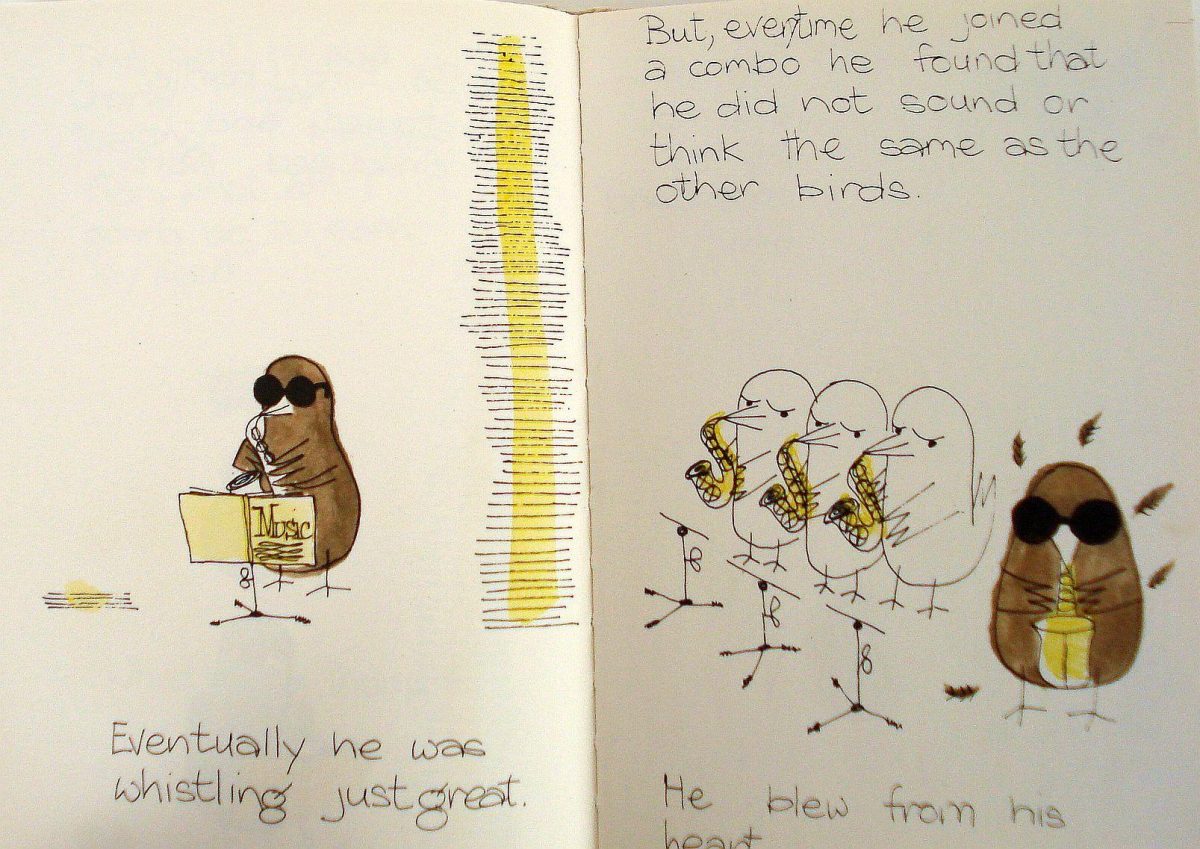 Music
Eventually he was
whistling just great.
But, everytime he joined
a combo he found that
he did not sound or
think the same as the
other birds.
He blew from his
heart